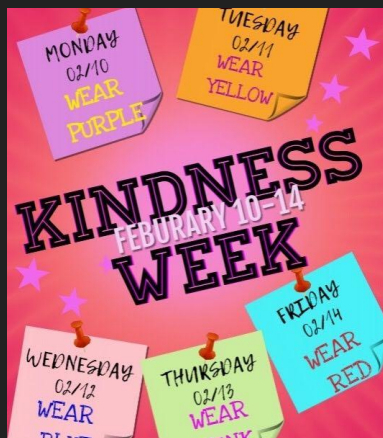 MONDAY
02/10
WEAR
PURPLE
TUESDAY
02/11
WEAR
YELLOW
KINDNESS
FEBURARY 10-14
WEEK
WEDNESDAY
02/12
WEAR
THURSDAY
02/13
WEAR
FRIDAY
02/14
WEAR
RED